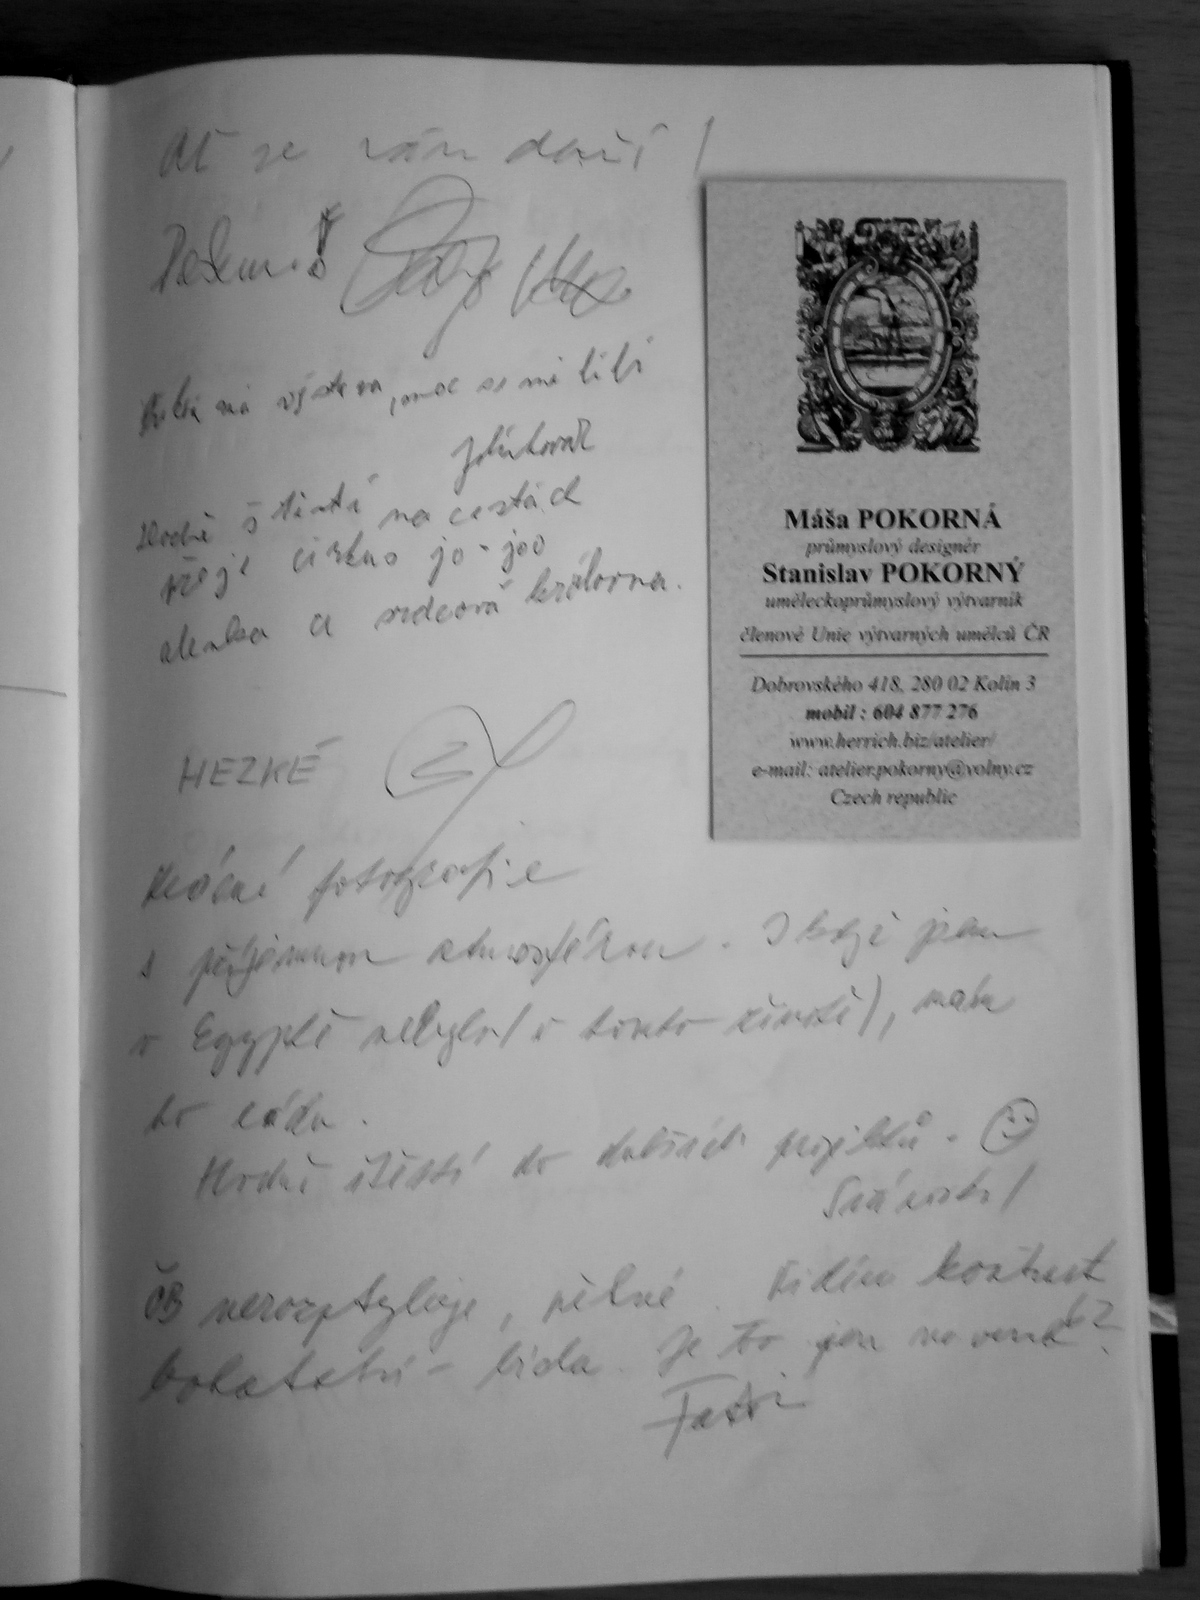 Ať se vám daří!
výstava, moc se mi líbí
Hodně štěstí na cestách
přeje cirkus jo-joo
alenka a srdcová královna.
HEZKÉ
Krásné fotografie
s příjemnou atmosférou. I když jsem
v Egyptě nebyla (v tomto životě), mám
to ráda.
Hodně štěstí do dalších projektů.
ČB nerozptyluje, pěkné. Vidím kontrast
bohatství - bída. Je to jen navenek?
Máša POKORNÁ
průmyslový designér
Stanislav POKORNÝ
uměleckoprůmyslový výtvarník
členové Unie výtvarných umělců ČR
Dobrovského 418, 280 02 Kolín 3
mobil : 604 877 276
www.herrich.biz/atelier/
e-mail: atelier.pokorny@volny.cz
Czech republic